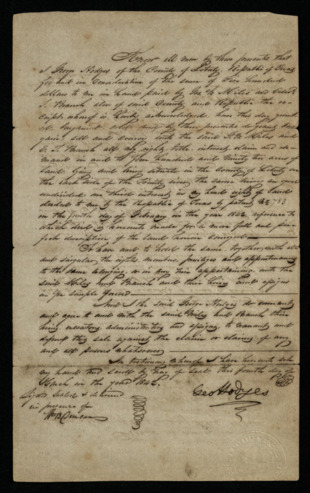 Know all men by these presents that
I George Hodges of the County of Liberty Republic of Texas
for and in Consideration of the sum of Five hundred
dollars to me in hand paid by
J. Branch also of said County and Republic the re-
ceipt whereof is hereby acknowledged have this day
and by these presents do
sell and convey unto the said
Branch all my right title interest claim and de-
mand in and to Four hundred and Ninety two acres of
Land lying and being situate in the County of Liberty on
the East side of the Trinity river the same being an
undivided one third interest in my head right of Land
deeded to me by the Republic of Texas by patent
on the fourth day of February in the year 1842 reference to
which deed is hereunto made for a more full and per-
fect description of the Land herein
To have and to hold the same together with all
and singular the rights members privileges and appurtenances
to the same belonging or in any wise appertaining unto the
said and Branch and their heirs and assigns
in fee simple forever
And I the said George Hodges do covenant
and agree to and with the said and Branch their
heirs executors administrators and assigns to warrant and
defend this sale against the claim or claims of any
and all persons whatsoever
In testimony whereof I have hereunto set
my hand and scroll by way of seal this fourth day of
March in the year 1842
Signed Sealed & delivered
in presence of
Geo Hodges